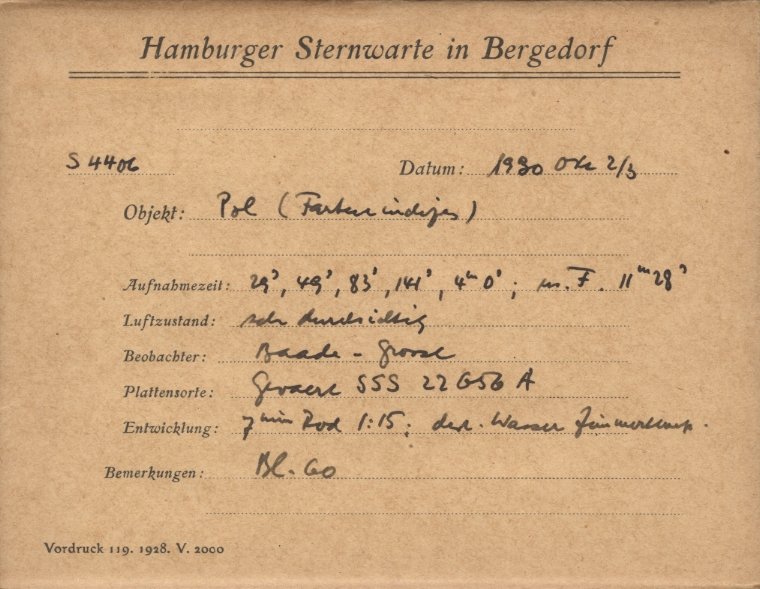 Hamburger Sternwarte in Bergedorf
S 4406 Datum: 1930 Okt 2/3
Objekt: Pol (Farbenindizes)
Aufnahmezeit: 29ˢ, 49ˢ, 83ˢ, 141ˢ, 4ᵐ 0ˢ; m. F. 11ᵐ 28ˢ
Luftzustand: sehr durchsichtig
Beobachter: Baade -
Plattensorte: Gevaert SSS 22656 A
Entwicklung: 7 min Rod 1:15; dest. Wasser
Bemerkungen: Bl. 60
Vordruck 119. 1928. V. 2000